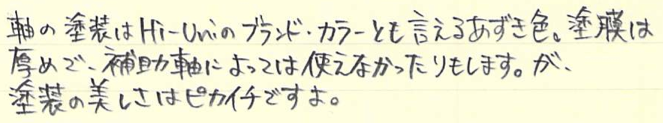 軸の塗装はHi-Uniのブランド・カラーとも言えるあずき色。塗膜は
厚めで、補助軸によっては使えなかったりもします。が、
塗装の美しさはピカイチですよ。